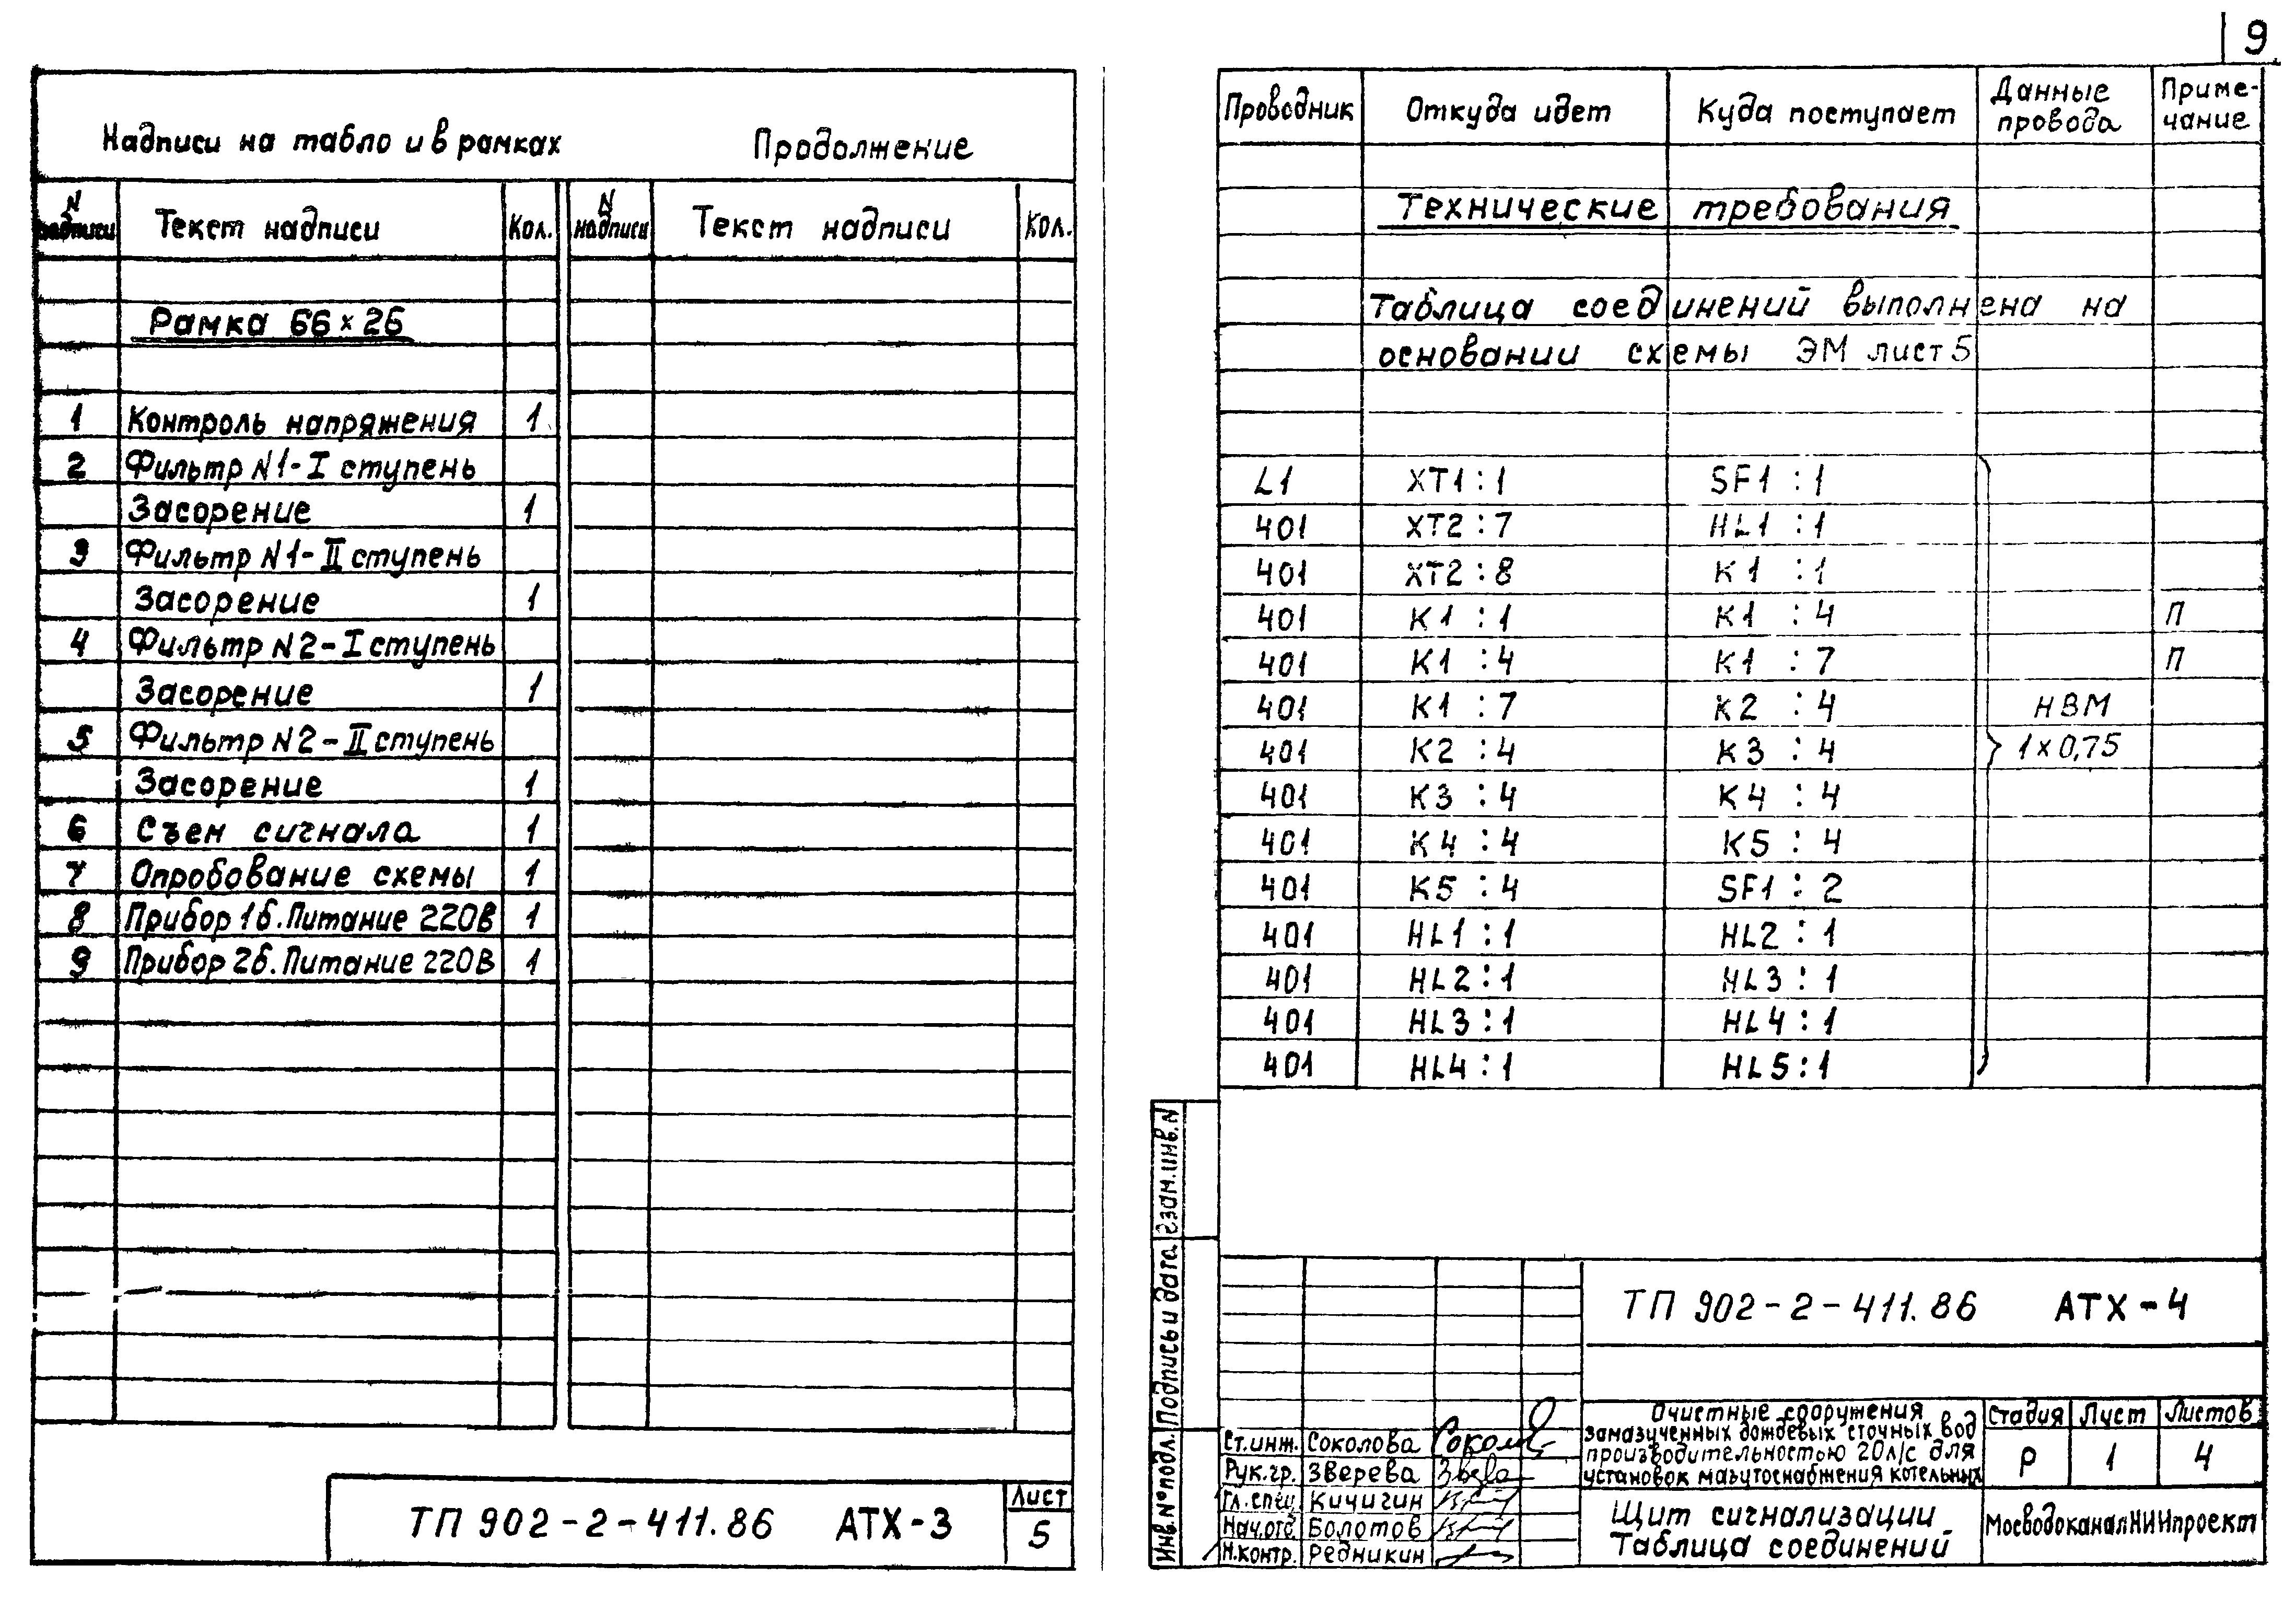 9
Надписи на табло и в рамках Продолжение
N надписи Текст надписи Кол. N надписи Текст надписи Кол.
Рамка 66×26
1 Контроль напряжения 1
2 Фильтр N1-I ступень
Засорение 1
3 Фильтр N1-II ступень
Засорение 1
4 Фильтр N2-I ступень
Засорение 1
5 Фильтр N2-II ступень
Засорение 1
6 Съем сигнала 1
7 Опробование схемы 1
8 Прибор 1б. Питание 220В 1
9 Прибор 2б. Питание 220В 1
ТП 902-2-411.86 АТХ-3
Лист
5
Проводник Откуда идет Куда поступает Данные провода Приме-чание
Технические требования
Таблица соединений выполнена на
основании схемы ЭМ лист 5
L1 XT1:1 SF1:1
401 XT2:7 HL1:1
401 XT2:8 K1:1
401 K1:1 K1:4 П
401 K1:4 K1:7 П
401 K1:7 K2:4 НВМ
401 K2:4 K3:4 1×0,75
401 K3:4 K4:4
401 K4:4 K5:4
401 K5:4 SF1:2
401 HL1:1 HL2:1
401 HL2:1 HL3:1
401 HL3:1 HL4:1
401 HL4:1 HL5:1
Взам.инв.N
Подпись и дата
Инв.№подл.
ТП 902-2-411.86 АТХ-4
Ст.инж. Соколова
Рук.гр. Зверева
Гл.спец. Кичигин
Нач.отд. Болотов
Н.контр. Редникин
Очистные сооружения
замазученных дождевых сточных вод
производительностью 20л/с для
установок мазутоснабжения котельных
Стадия Лист Листов
Р 1 4
Щит сигнализации
Таблица соединений
МосводоканалНИИпроект